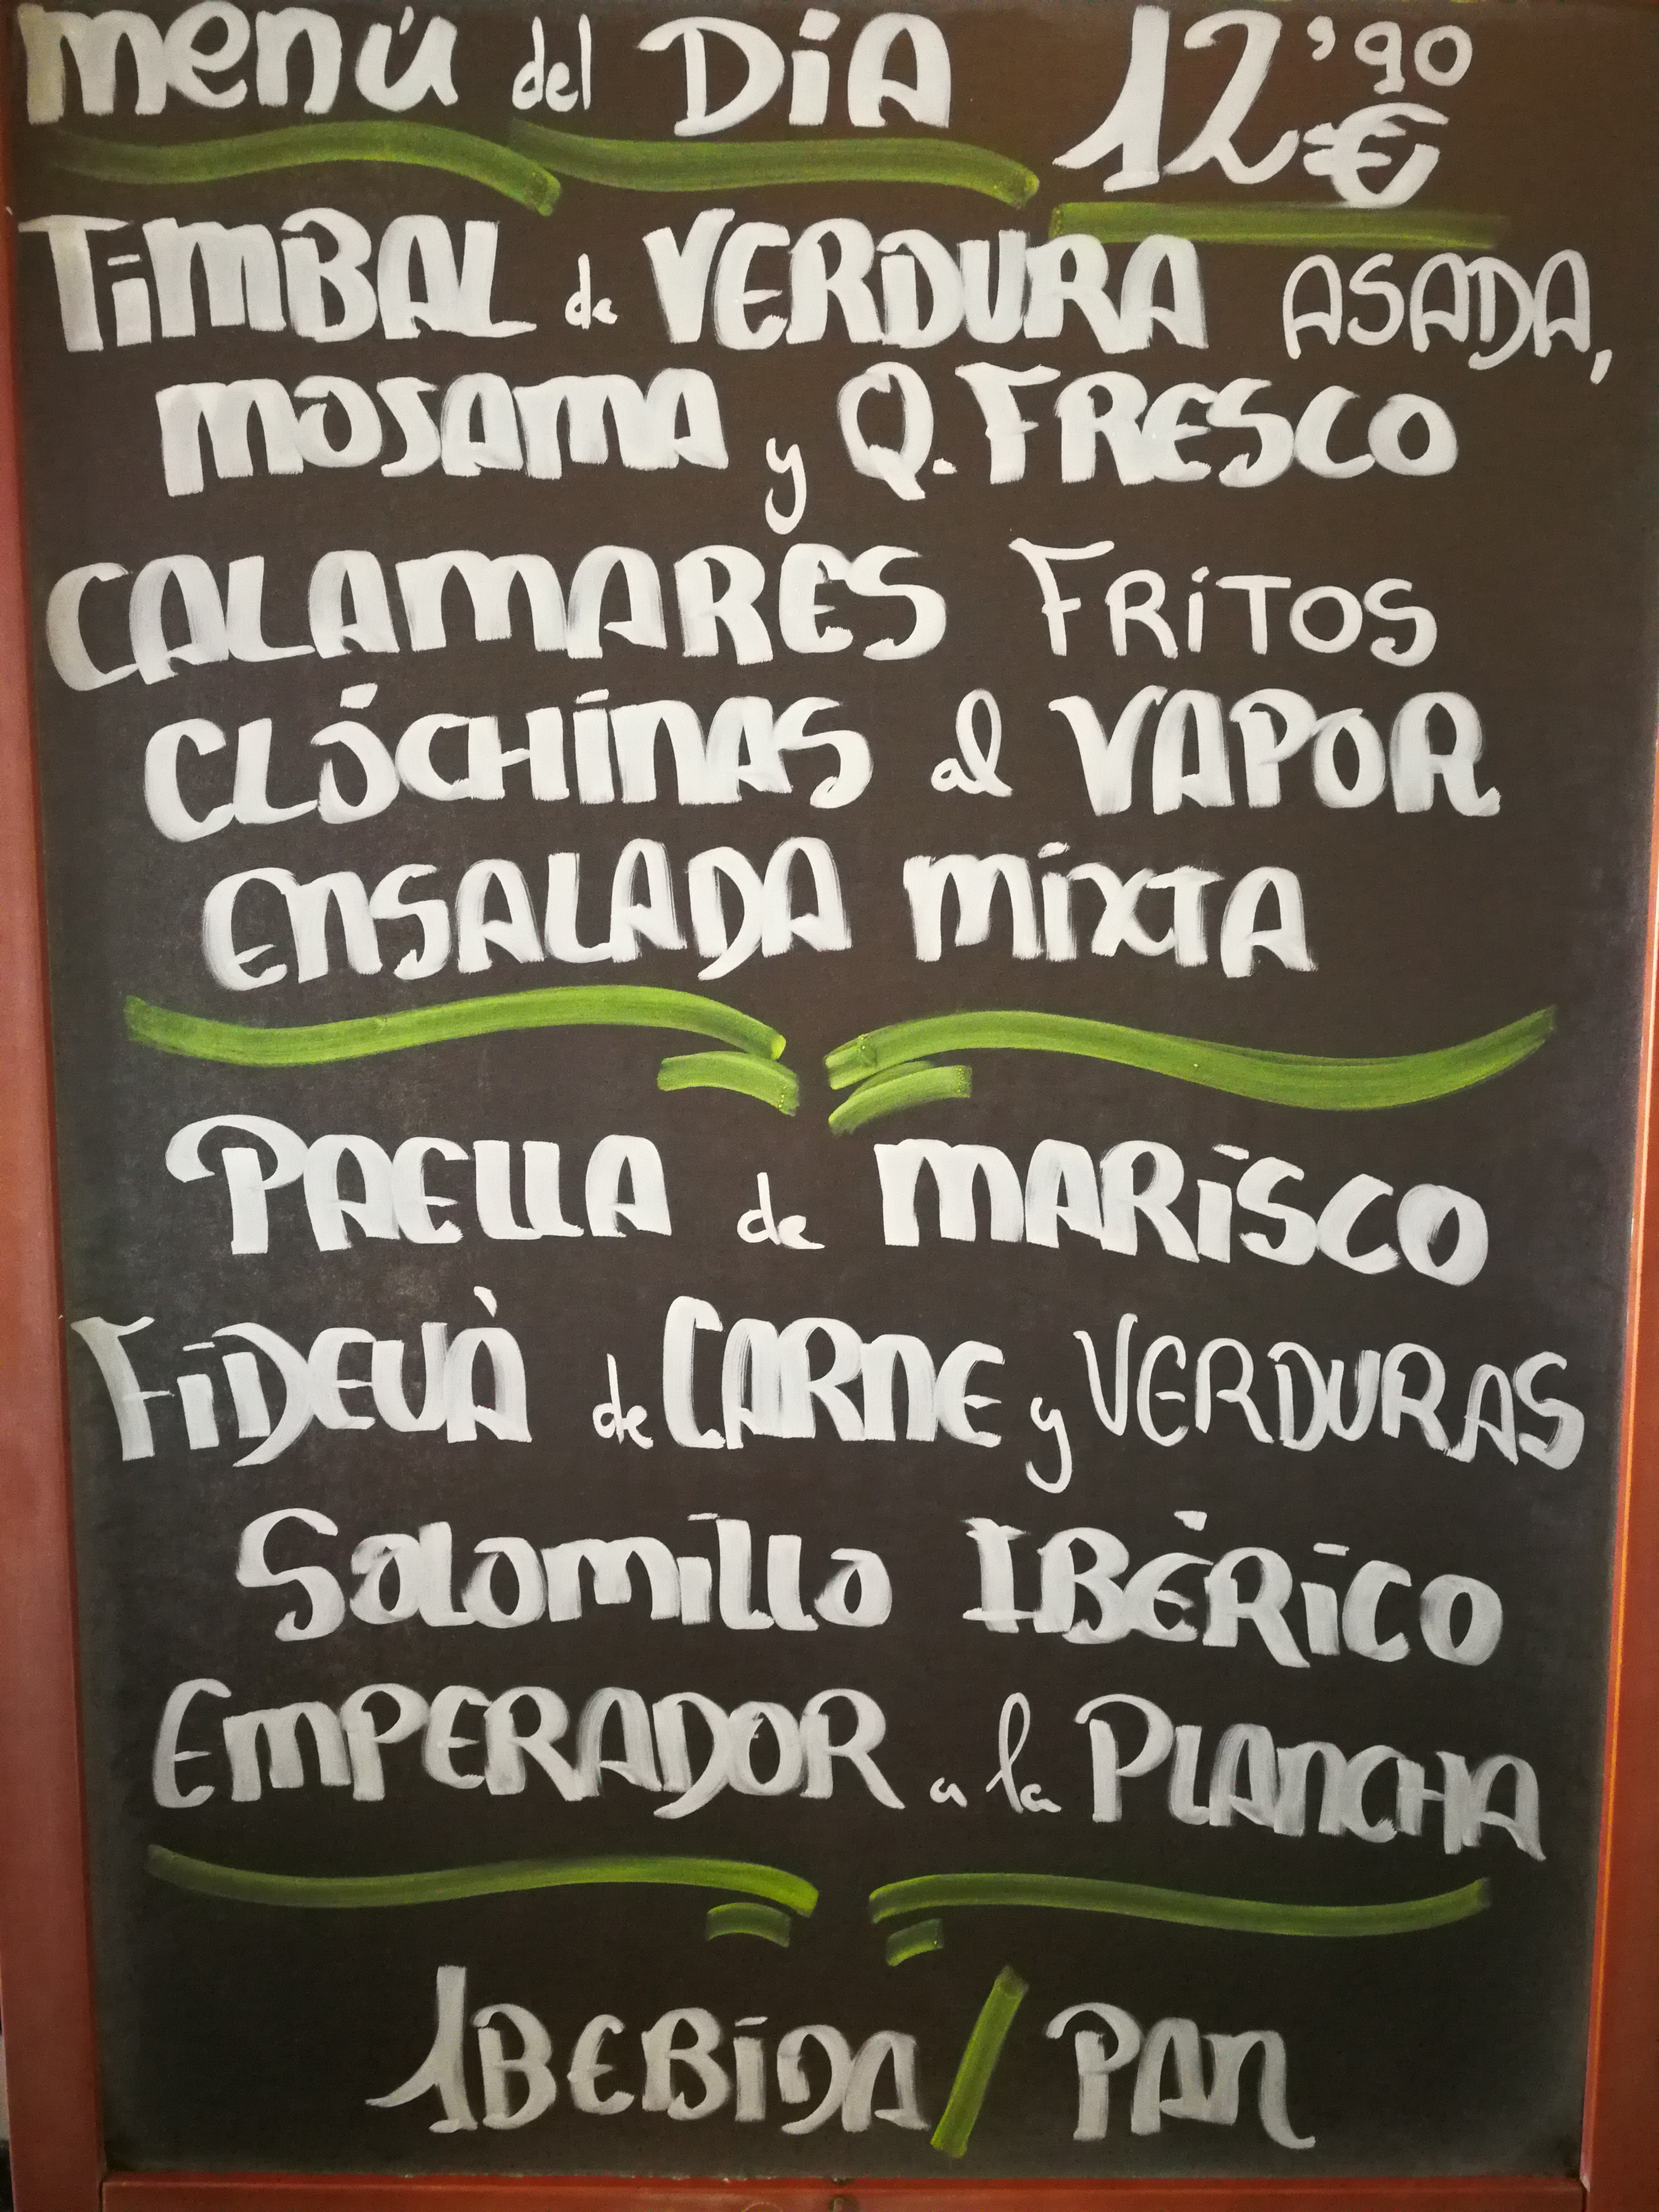 menú del DÍA 12'90 €
TIMBAL de VERDURA ASADA,
MOJAMA y Q. FRESCO
CALAMARES FRITOS
CLÓCHINAS al VAPOR
ENSALADA MIXTA
PAELLA de MARISCO
FIDEUÀ de CARNE y VERDURAS
Solomillo IBÉRICO
EMPERADOR a la PLANCHA
1 BEBIDA / PAN